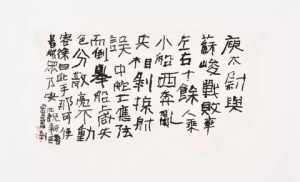 庾太尉與
蘇峻戰敗率
左右十餘人乘
小船西奔亂
兵相剝掠射
誤中舵工應弦
而倒舉船上咸失
色分散亮不動
容徐曰此手那可使
著賊眾乃安